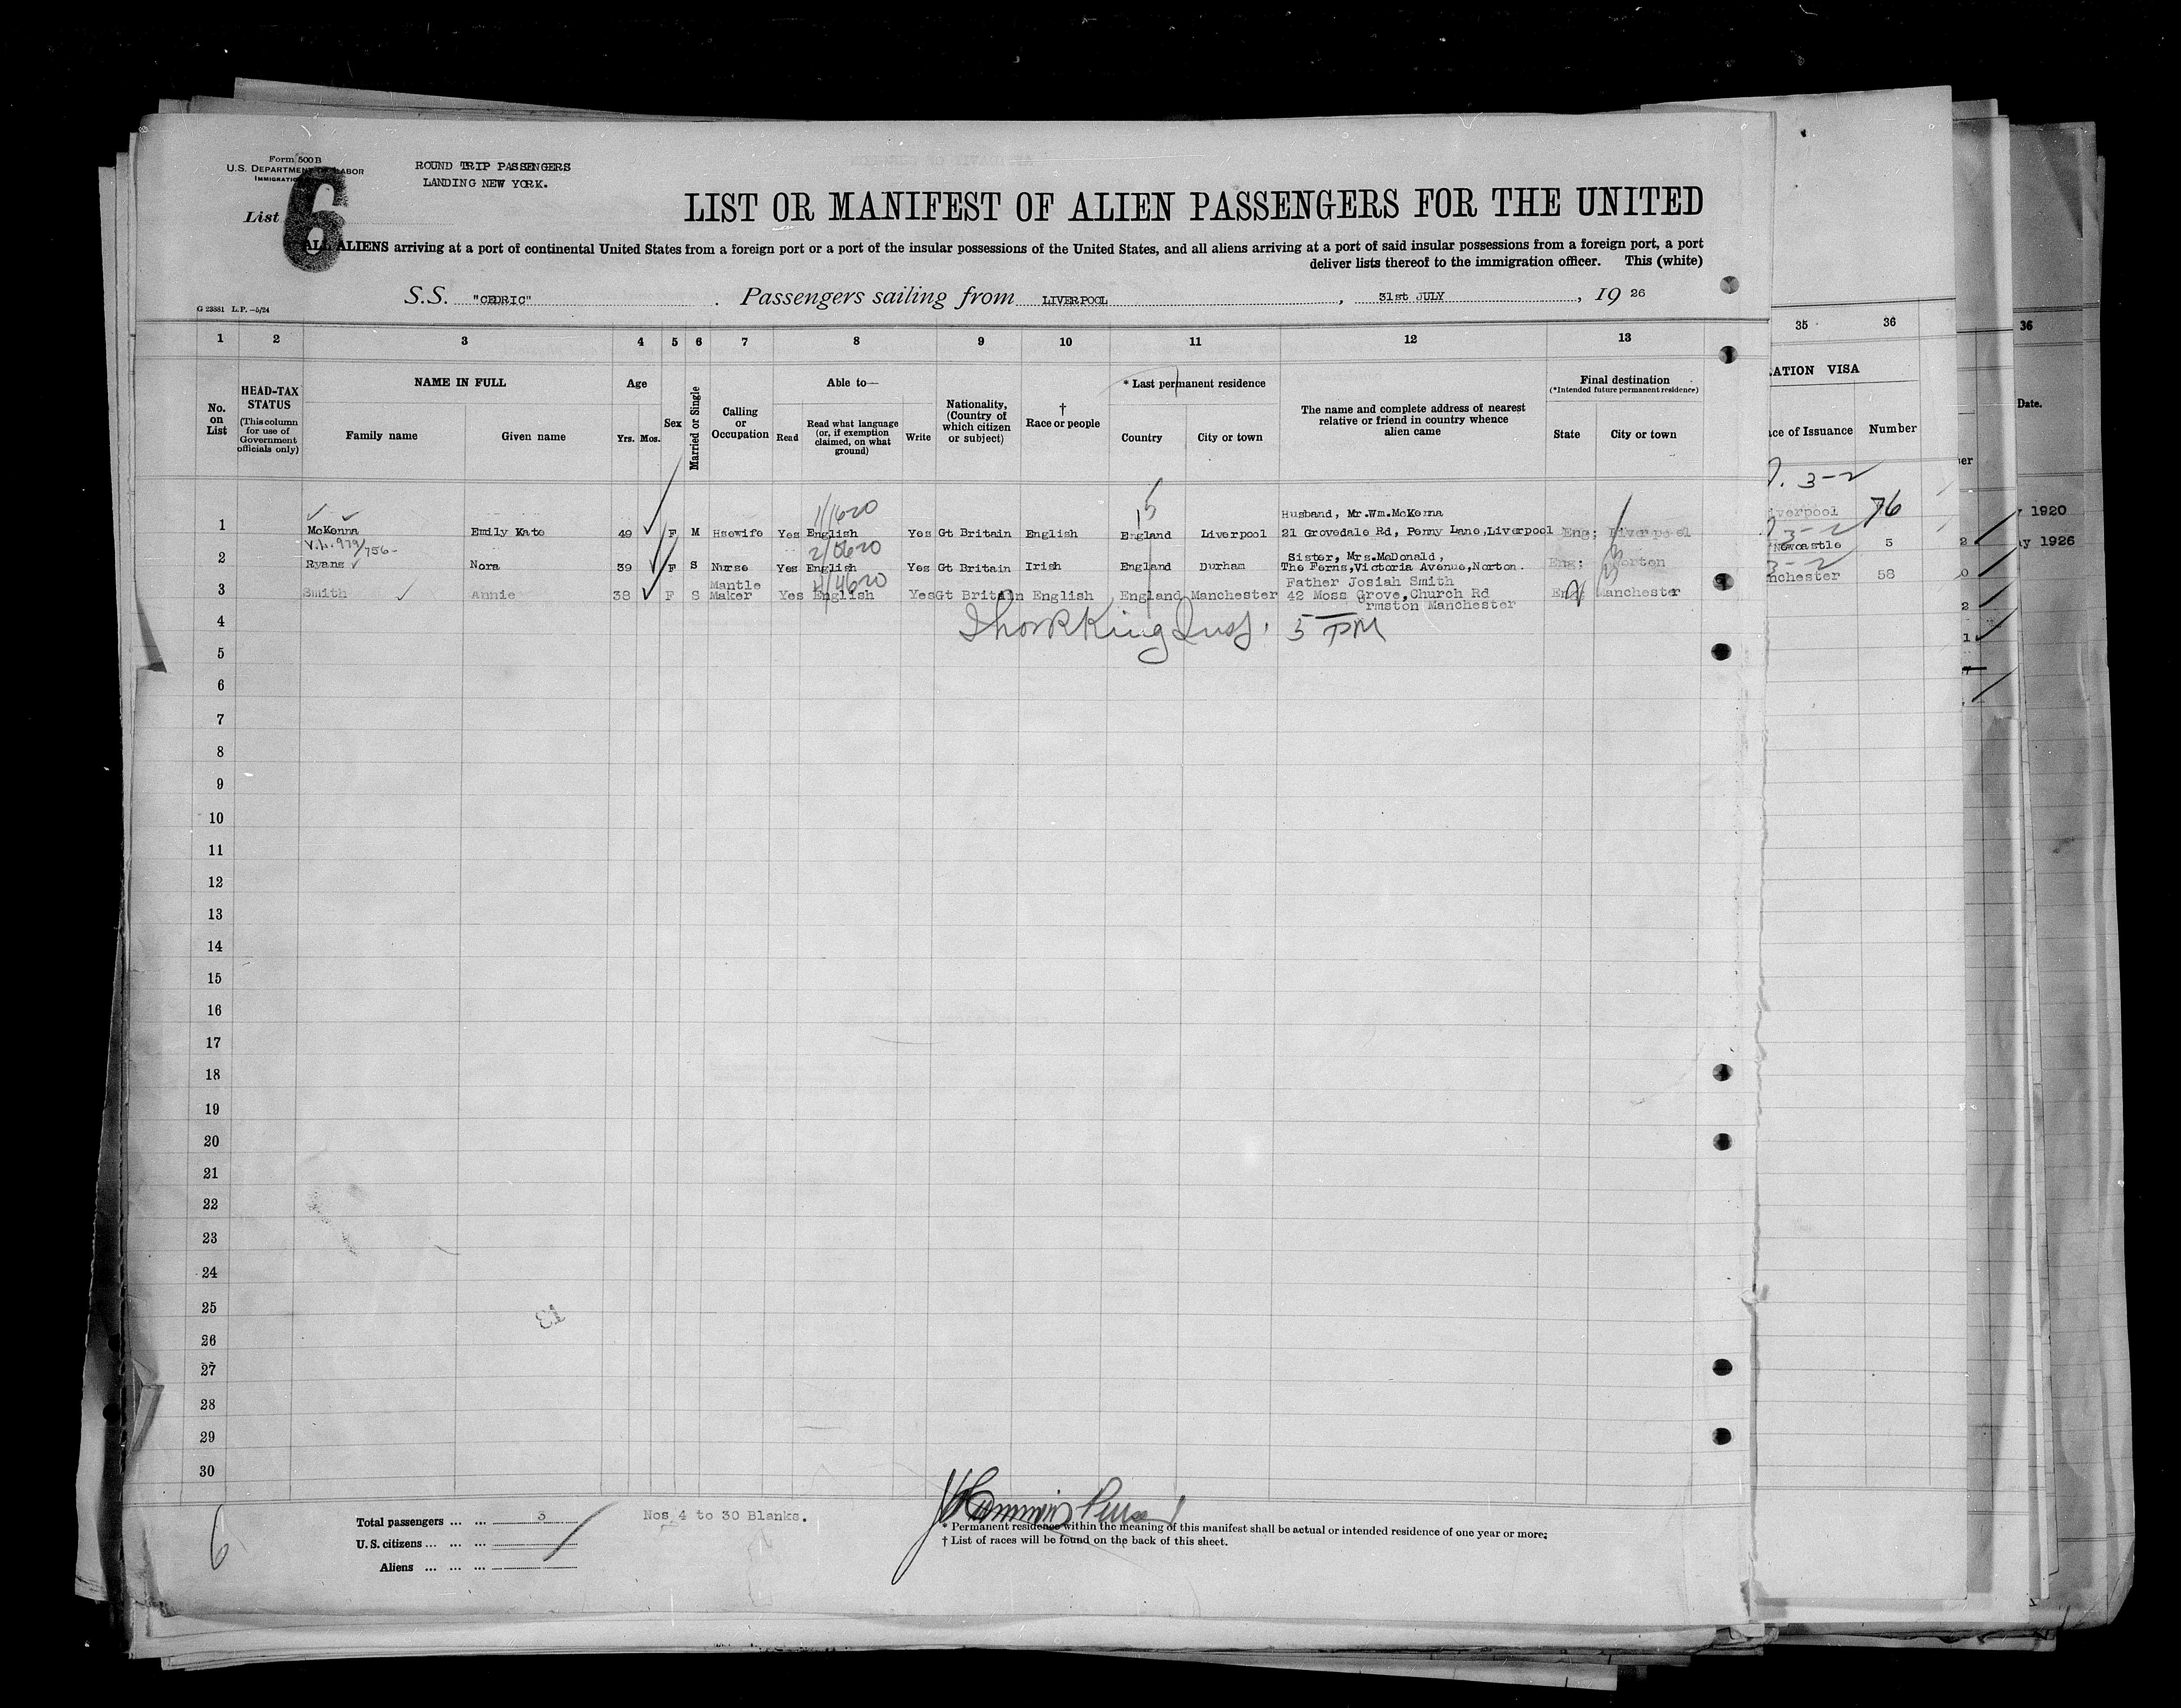 Form 500 B
U.S. DEPARTMENT OF LABOR
IMMIGRATION
ROUND TRIP PASSENGERS
LANDING NEW YORK.
List 6
LIST OR MANIFEST OF ALIEN PASSENGERS FOR THE UNITED
ALL ALIENS arriving at a port of continental United States from a foreign port or a port of the insular possessions of the United States, and all aliens arriving at a port of said insular possessions from a foreign port, a port
deliver lists thereof to the immigration officer. This (white)
S.S. "CEDRIC" . Passengers sailing from LIVERPOOL , 31st JULY , 19 26
G 23881 L.P. -5/24
1 2 3 4 5 6 7 8 9 10 11 12 13
35 36
36
HEAD-TAX STATUS
(This column for use of Government officials only)
No. on List
NAME IN FULL
Family name
Given name
Age
Yrs. Mos.
Sex
Married or Single
Calling or Occupation
Able to—
Read
Read what language (or, if exemption claimed, on what ground)
Write
Nationality, (Country of which citizen or subject)
† Race or people
* Last permanent residence
Country
City or town
The name and complete address of nearest relative or friend in country whence alien came
Final destination
(*Intended future permanent residence)
State
City or town
ATION VISA
ce of Issuance
Number
Date.
3-2
1/1620
5
Husband, Mr.Wm.McKenna
1 McKenna Emily Kate 49 F M Hsewife Yes English Yes Gt Britain English England Liverpool 21 Grovedale Rd, Penny Lane,Liverpool Eng; Liverpool
iverpool 76
1920
V.L. 979/756-
2/5620
Sister, Mrs.McDonald,
2 Ryans Nora 39 F S Nurse Yes English Yes Gt Britain Irish England Durham The Ferns,Victoria Avenue,Norton. Eng: Norton
3-2
Newcastle 5
y 1926
4/4620
Mantle
Father Josiah Smith
3 Smith Annie 38 F S Maker Yes English Yes Gt Britain English England Manchester 42 Moss Grove,Church Rd Eng Manchester
3-2
nchester 58
rmston Manchester
4
5 PM
5
6
7
8
9
10
11
12
13
14
15
16
17
18
19
20
21
22
23
24
25
26
27
28
29
30
6
Total passengers ... ... 3
Nos 4 to 30 Blanks.
U. S. citizens ... ... ...
Aliens ... ... ...
Purser
* Permanent residence within the meaning of this manifest shall be actual or intended residence of one year or more;
† List of races will be found on the back of this sheet.